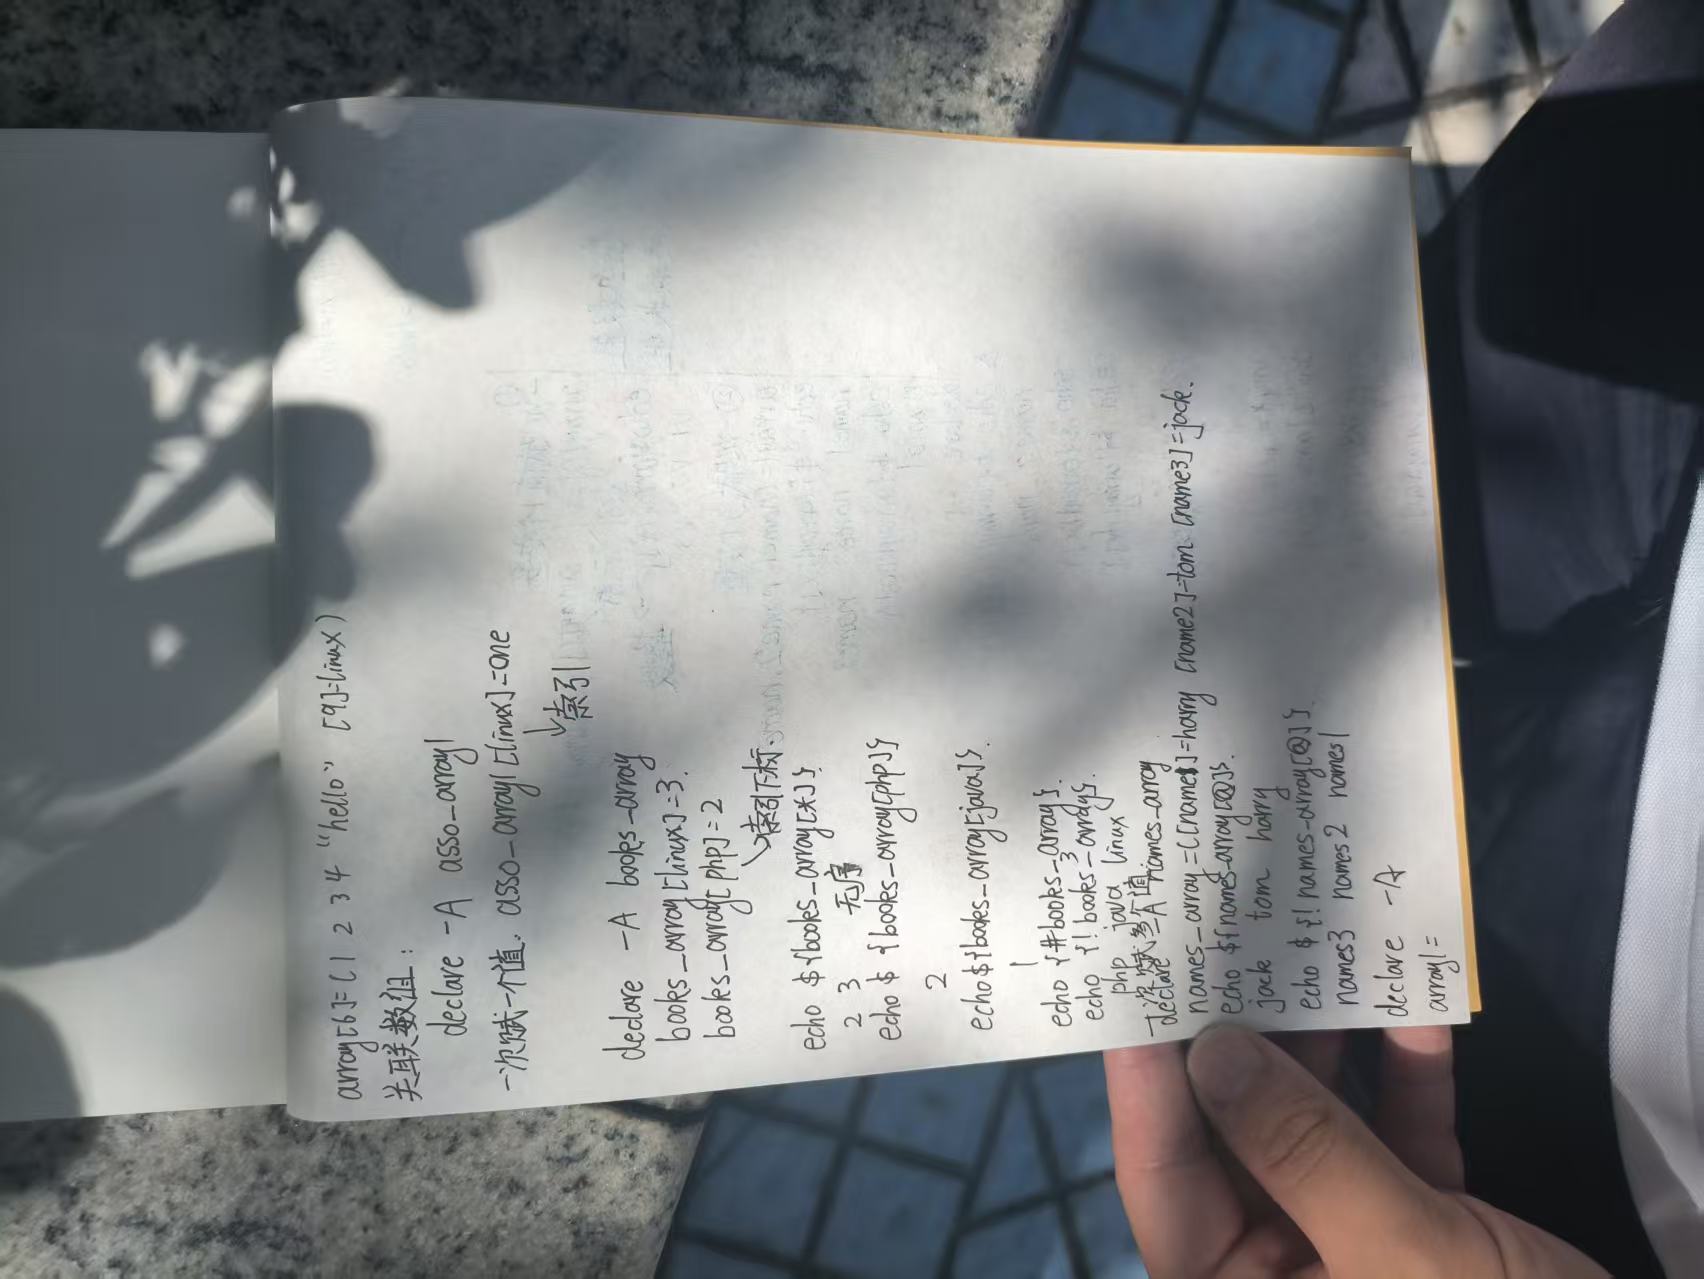 array[6]=(1 2 3 4 "hello" [9]=linux)
关联数组:
declare -A asso_array1
一次赋一个值. asso_array1[linux]=one
↓索引
declare -A books_array
books_array[linux]=3.
books_array[php]=2
↙索引下标.
echo ${books_array[*]}.
2 3 无序
echo ${books_array[php]}
2
echo ${books_array[java]}.
1
echo {#books_array}.
3
echo {!books_array}.
php java linux
一次赋多个值
declare -A names_array
names_array=([name1]=harry [name2]=tom [name3]=jack.
echo ${names_array[@]}.
jack tom harry
echo ${!names_array[@]}.
names3 names2 names1
declare -A
array1=